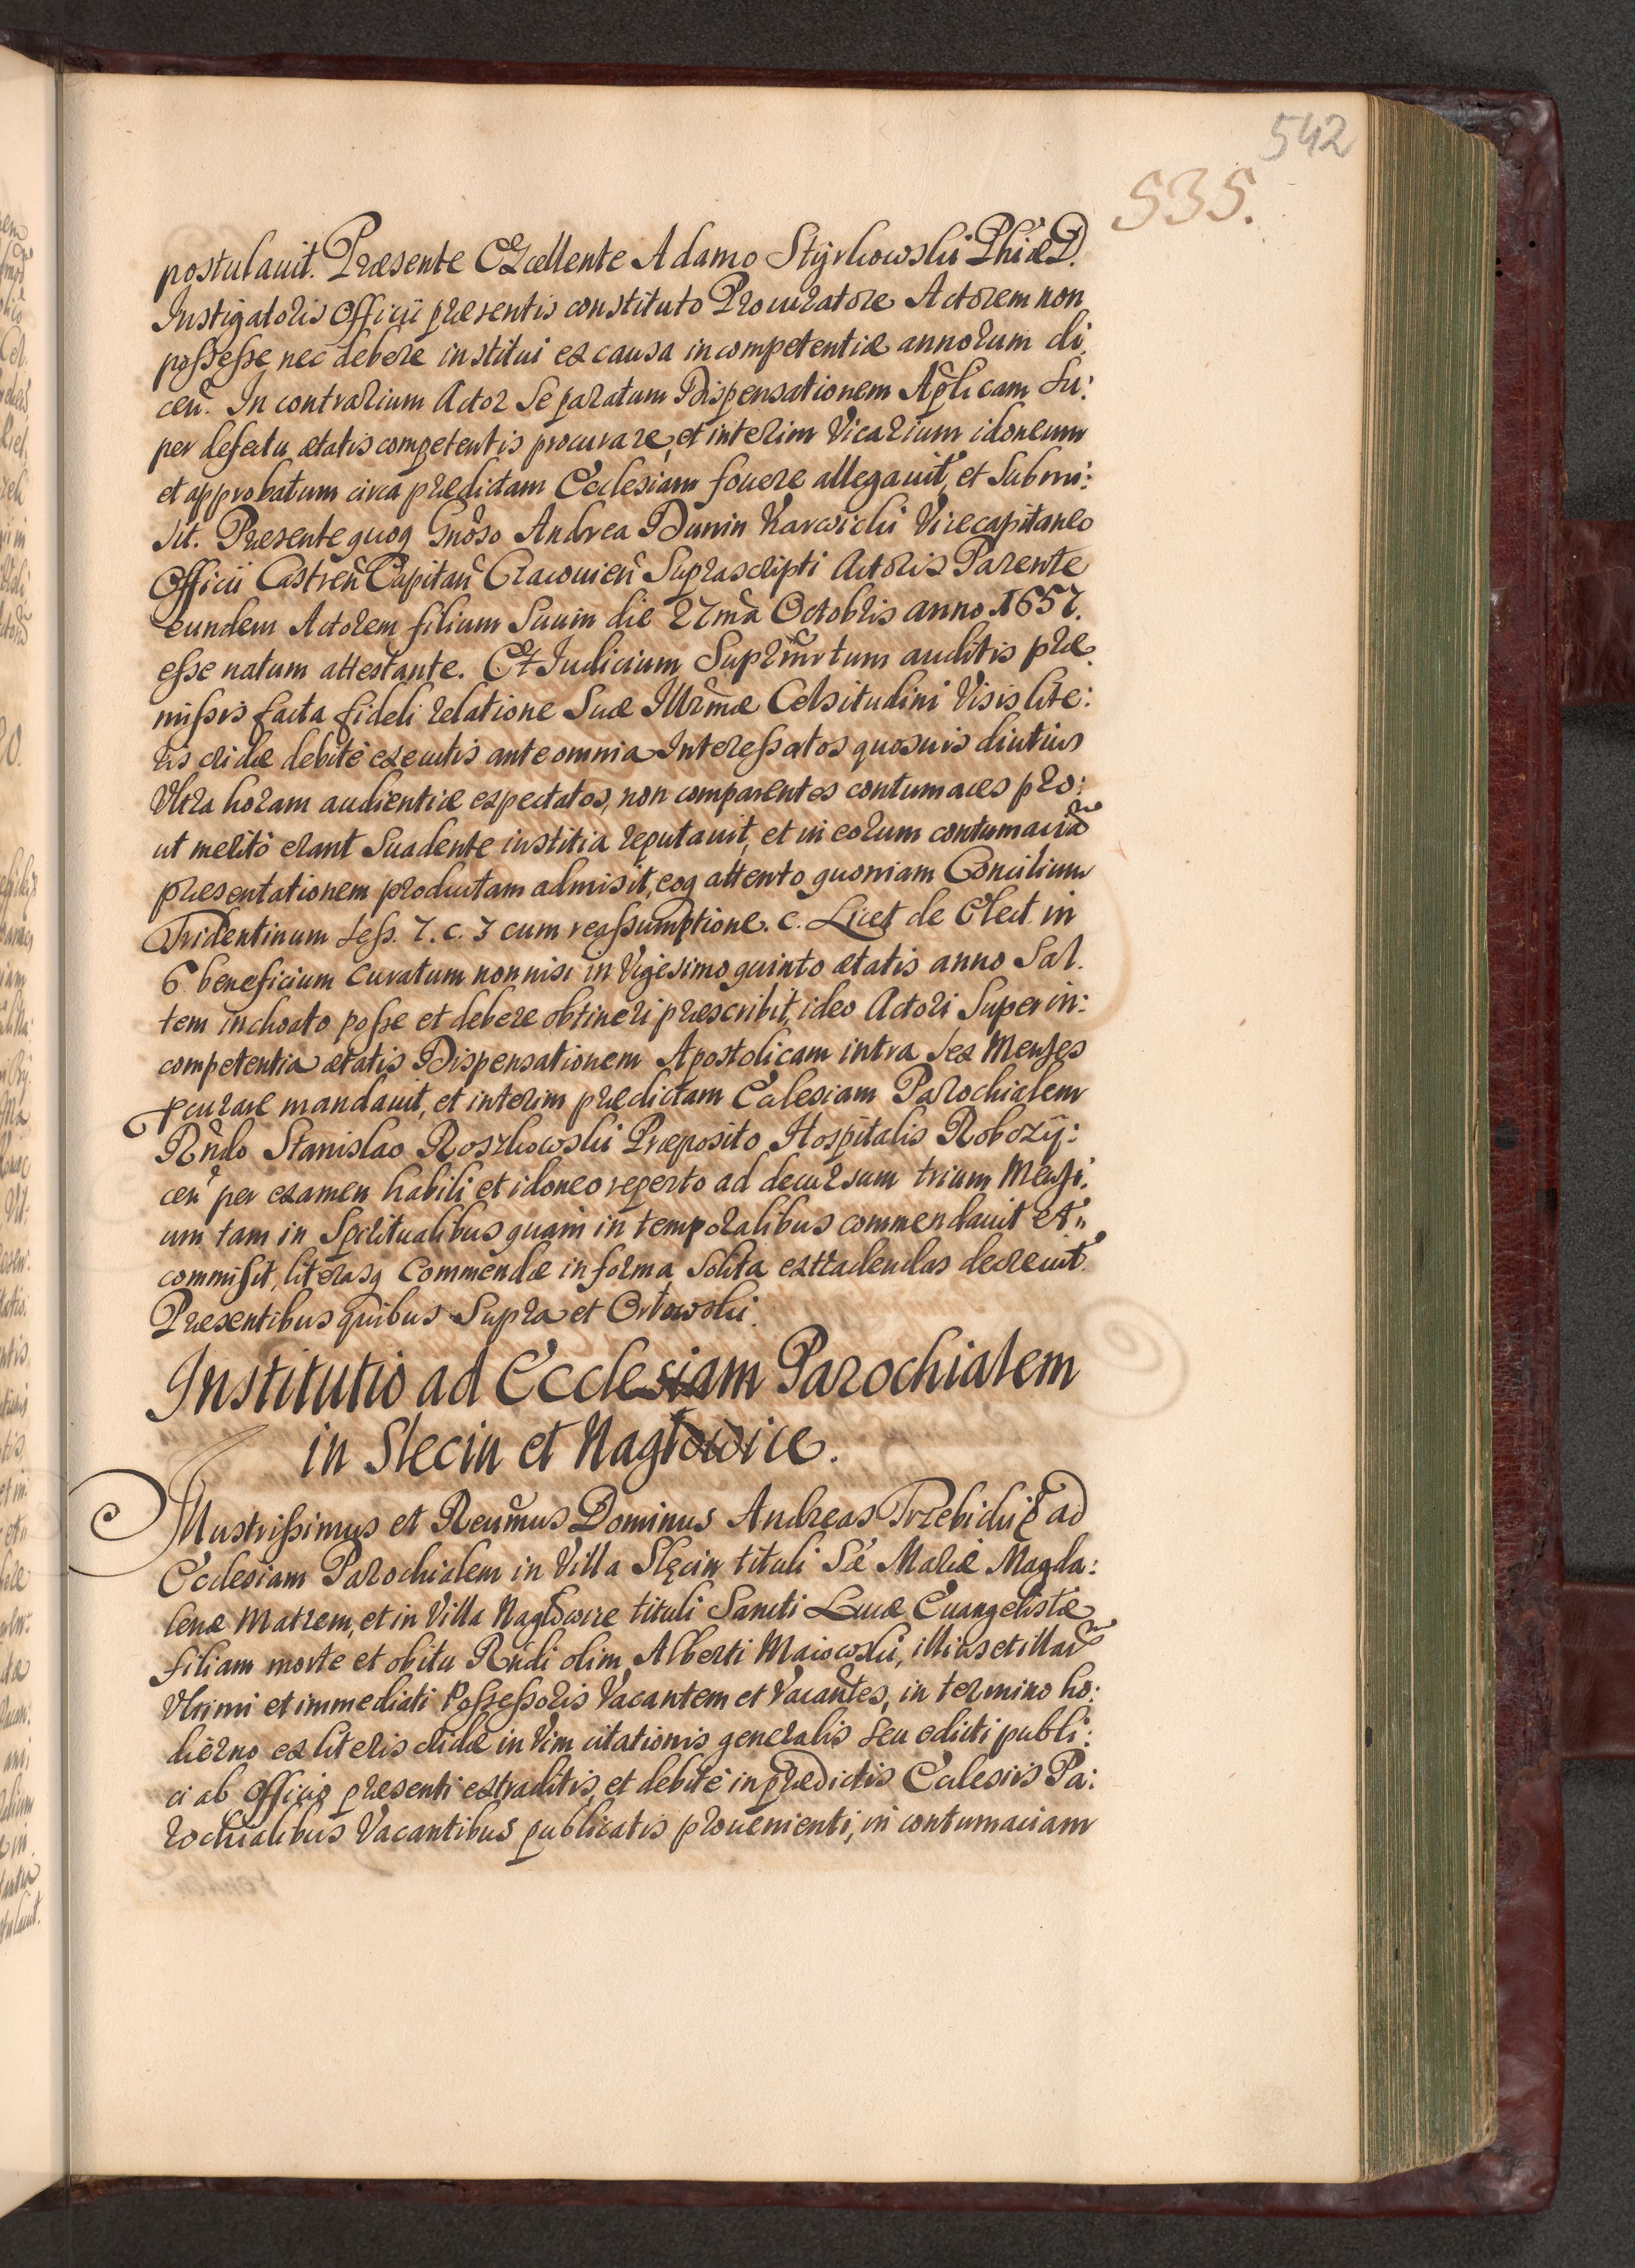 542
535.
postulauit. Præsente Excellente Adamo Styrkowski Phiæ D.
Instigatoris Officii præsentis constituto Procuratore Actorem non
possesse nec debere institui ex causa incompetentiæ annorum di
cen. In contrarium Actor se paratum Dispensationem Aplicam su:
per defectu ætatis competentis procurare, et interim Vicarium idoneum
et approbatum circa prædictam Ecclesiam fouere allegauit, et submi:
sit. Præsente quoq Gnoso Andrea Dunin Karwicki Vicecapitaneo
Officii Castren Capitan Cracouien Suprascripti Actoris Parente
eundem Actorem filium Suum die 27ma Octobris anno 1657.
esse natum attestante. Et Iudicium auditis præ
missis facta fideli relatione Suæ Illrmæ Celsitudini Visis lite:
ris cridæ debitè executis ante omnia Interessatos quosuis diutius
Vltra horam audientiæ expectatos, non comparentes contumaces pro:
ut meritò erant Suadente iustitia reputauit, et in eorum contumaciã
præsentationem productam admisit, eoq attento quoniam Concilium
Tridentinum sess. 7. c. 3 cum reassumptione. c. Licet de Elect. in
6. beneficium curatum non nisi in Vigesimo quinto ætatis anno Sal.
tem inchoato posse et debere obtineri præscribit, ideo Actori Super in:
competentia ætatis Dispensationem Apostolicam intra sex Menses
pcurare mandauit, et interim prædictam Ecclesiam Parochialem
Rndo Stanislao Roszkowski Præposito Hospitalis Robozy:
cen per examen habili et idoneo reperto ad decursum trium Mensi:
um tam in Spiritualibus quam in temporalibus commendauit et
commisit, literasq Commendæ in forma solita extradendas decreuit.
Præsentibus quibus Supra et Orłowski.
Institutio ad Ecclesiam Parochialem
in Slecin et Nagłowice.
Illustrissimus et Reumus Dominus Andreas Trzebicki & ad
Ecclesiam Parochialem in Villa Slęcin tituli Sæ Mariæ Magda:
lenæ Matrem, et in Villa Nagłowice tituli Sancti Lucæ Euangelistæ
filiam morte et obitu Rndi olim Alberti Maiowski, illius et illarũ
Vltimi et immediati Possessoris Vacantem et Vacantes, in termino ho:
dierno ex literis cridæ in Vim citationis generalis seu edicti publi:
ci ab Officio præsenti extraditis, et debitè in prædictis Ecclesiis Pa:
rochialibus Vacantibus publicatis prouenienti, in contumaciam